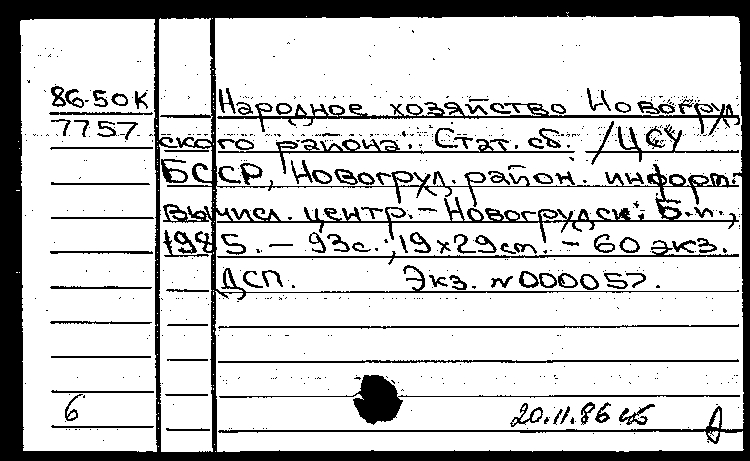 86-50К Народное хозяйство Новогруд
7757 ского района: Стат. сб. /ЦСУ
БССР, Новогруд. район. информ.-
вычисл. центр.- Новогрудск: Б.и.,
1985. - 93с.; 19х29см. - 60 экз.
ДСП. Экз. №000057.
6 20.11.86